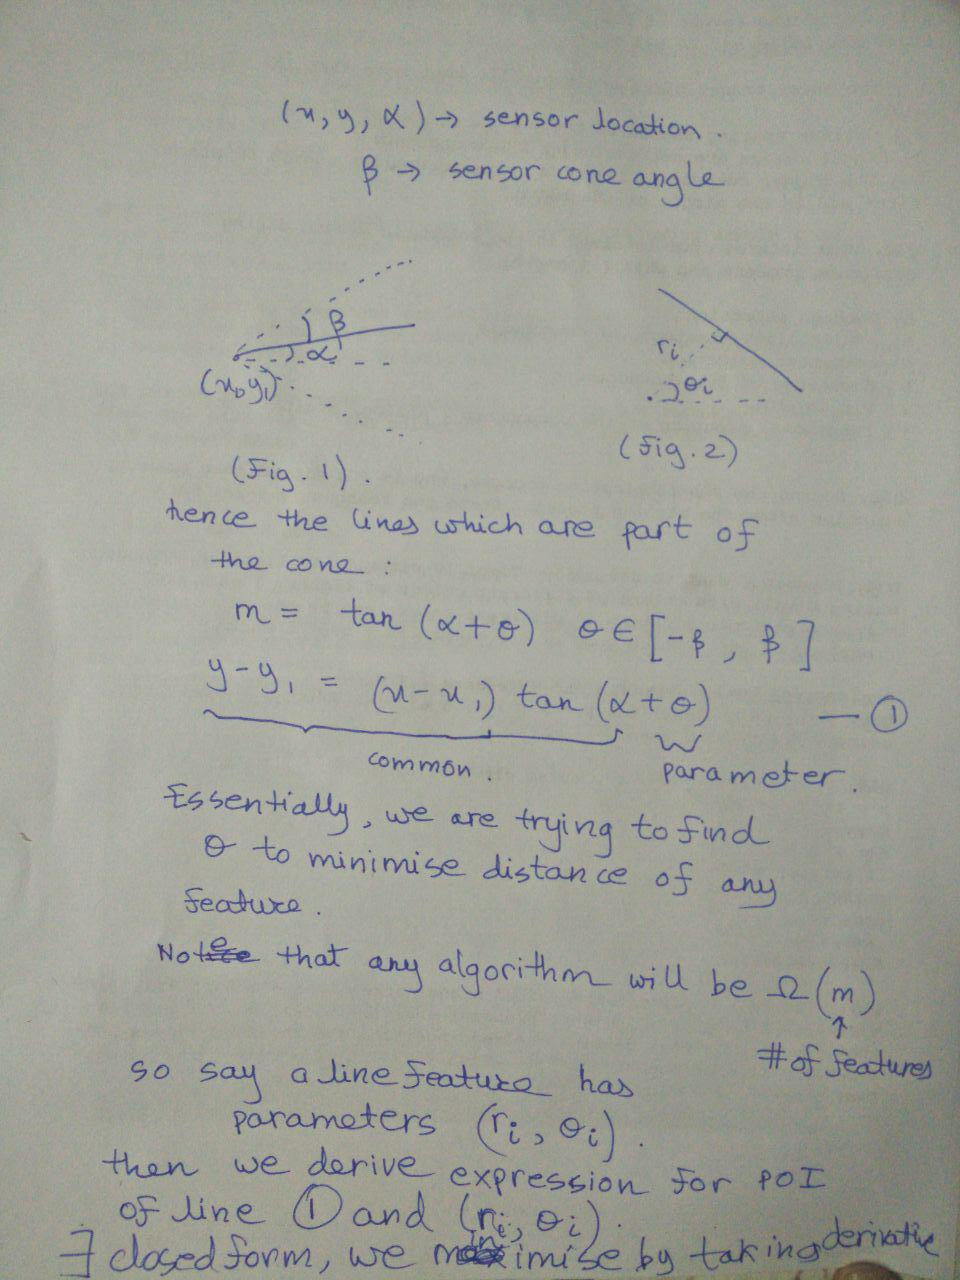 (x, y, α) → sensor location.
β → sensor cone angle
β
α
(x₁, y₁)
(Fig. 1).
rᵢ
θᵢ
(Fig. 2)
hence the lines which are part of
the cone :
m = tan (α+θ) θ ∈ [-β, β]
y-y₁ = (x-x₁) tan (α+θ) — ①
common.
parameter.
Essentially, we are trying to find
θ to minimise distance of any
feature.
Note that any algorithm will be Ω(m)
↑
# of features
so say a line feature has
parameters (rᵢ, θᵢ).
then we derive expression for POI
of line ① and (rᵢ, θᵢ).
∃ closed form, we minimise by taking derivative